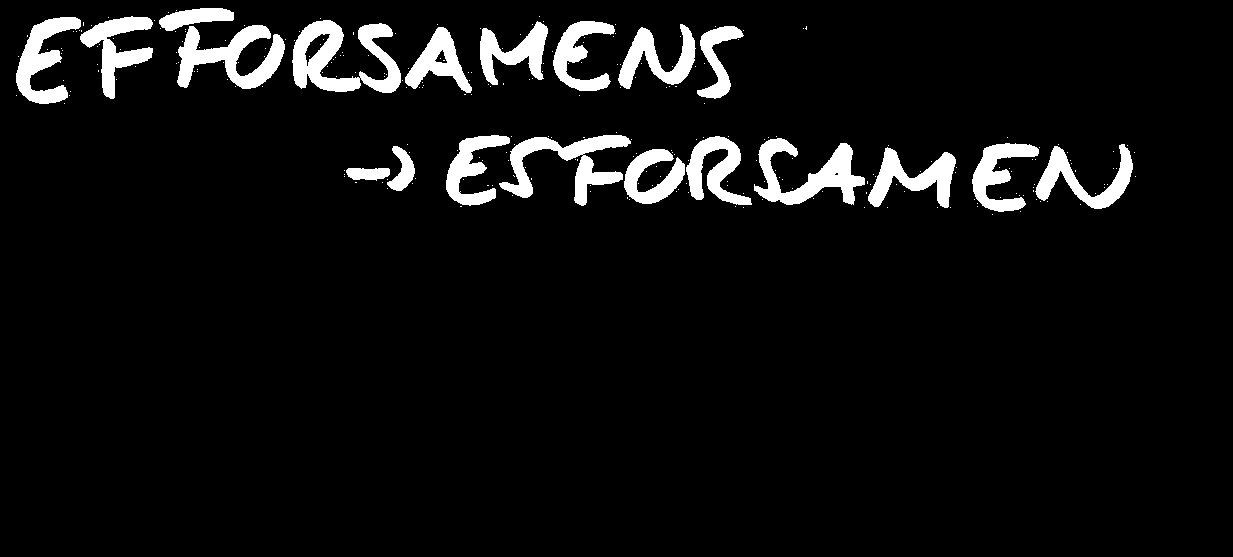 EFFORSAMENS
→ ESFORSAMEN